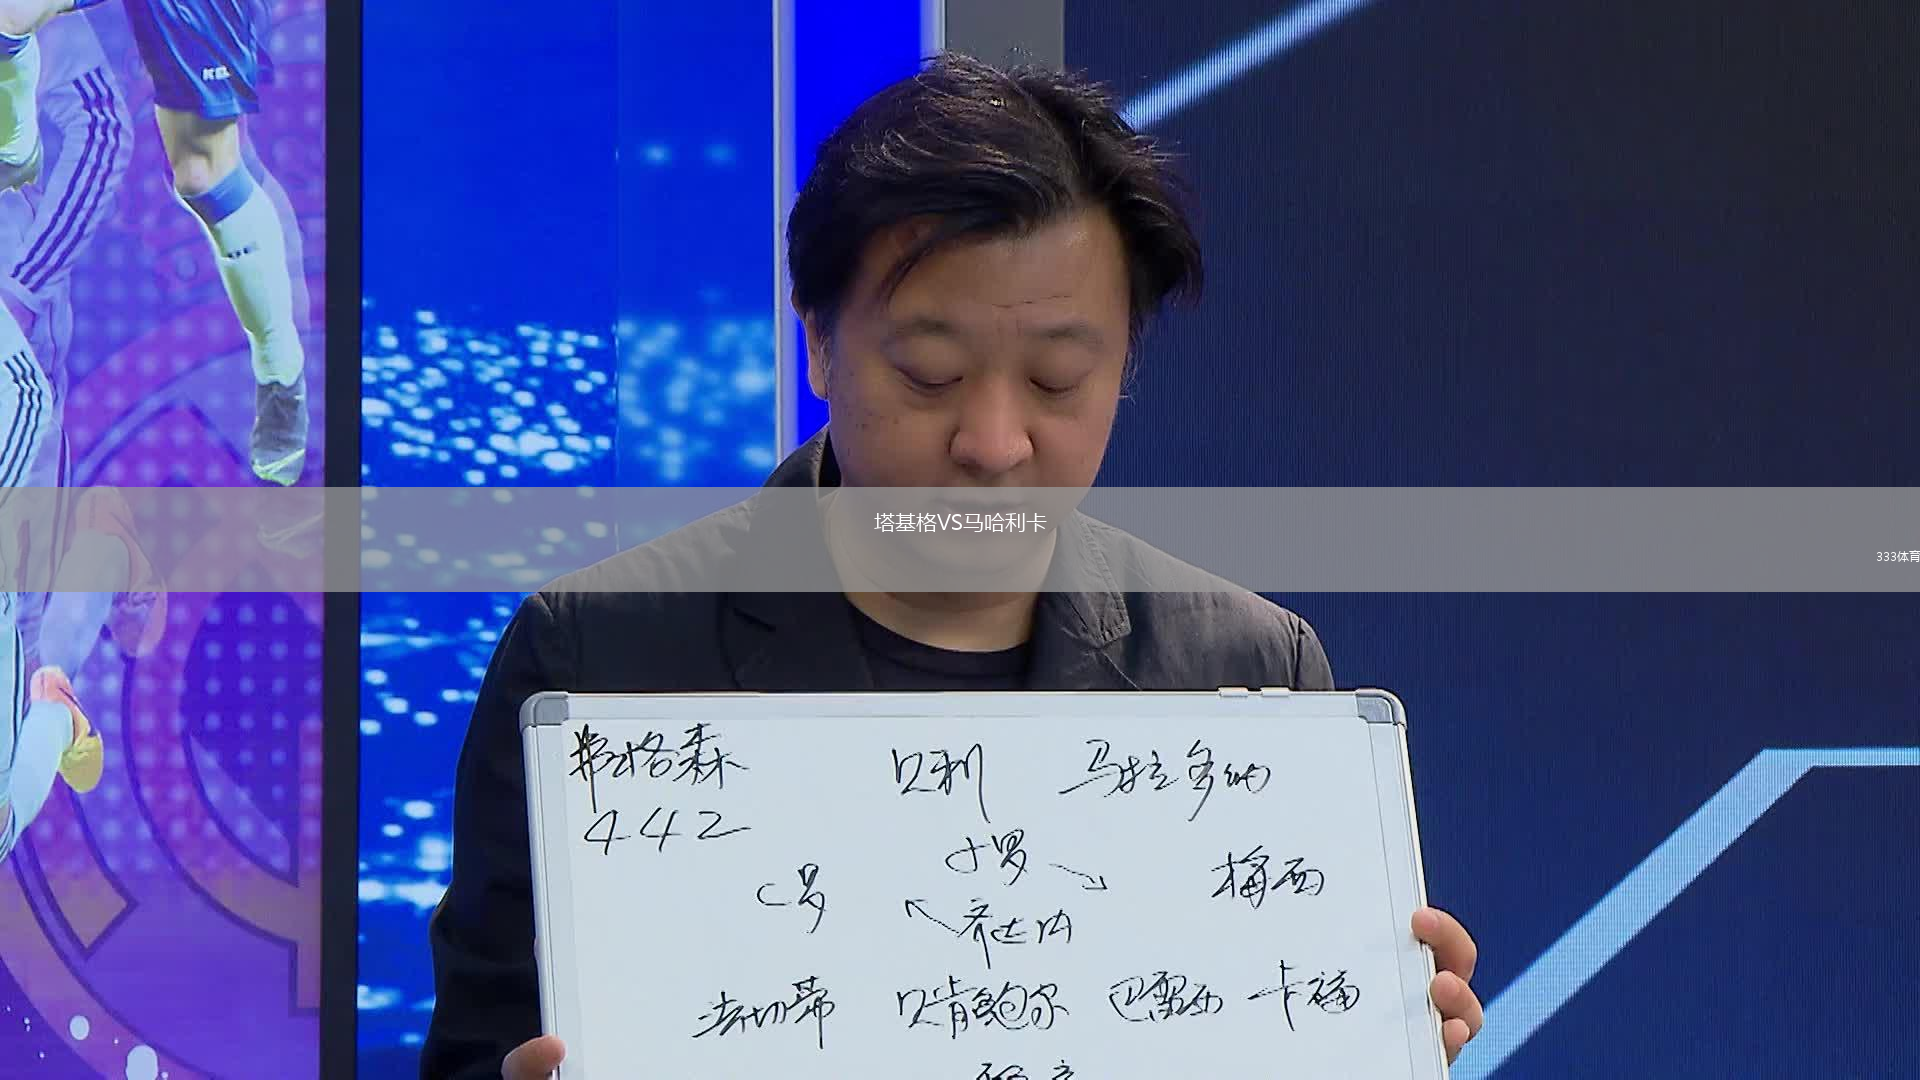 塔基格VS马哈利卡
333体育
弗格森 贝利 马拉多纳
442
小罗
C罗 梅西
齐达内
法切蒂 贝肯鲍尔 巴雷西 卡福